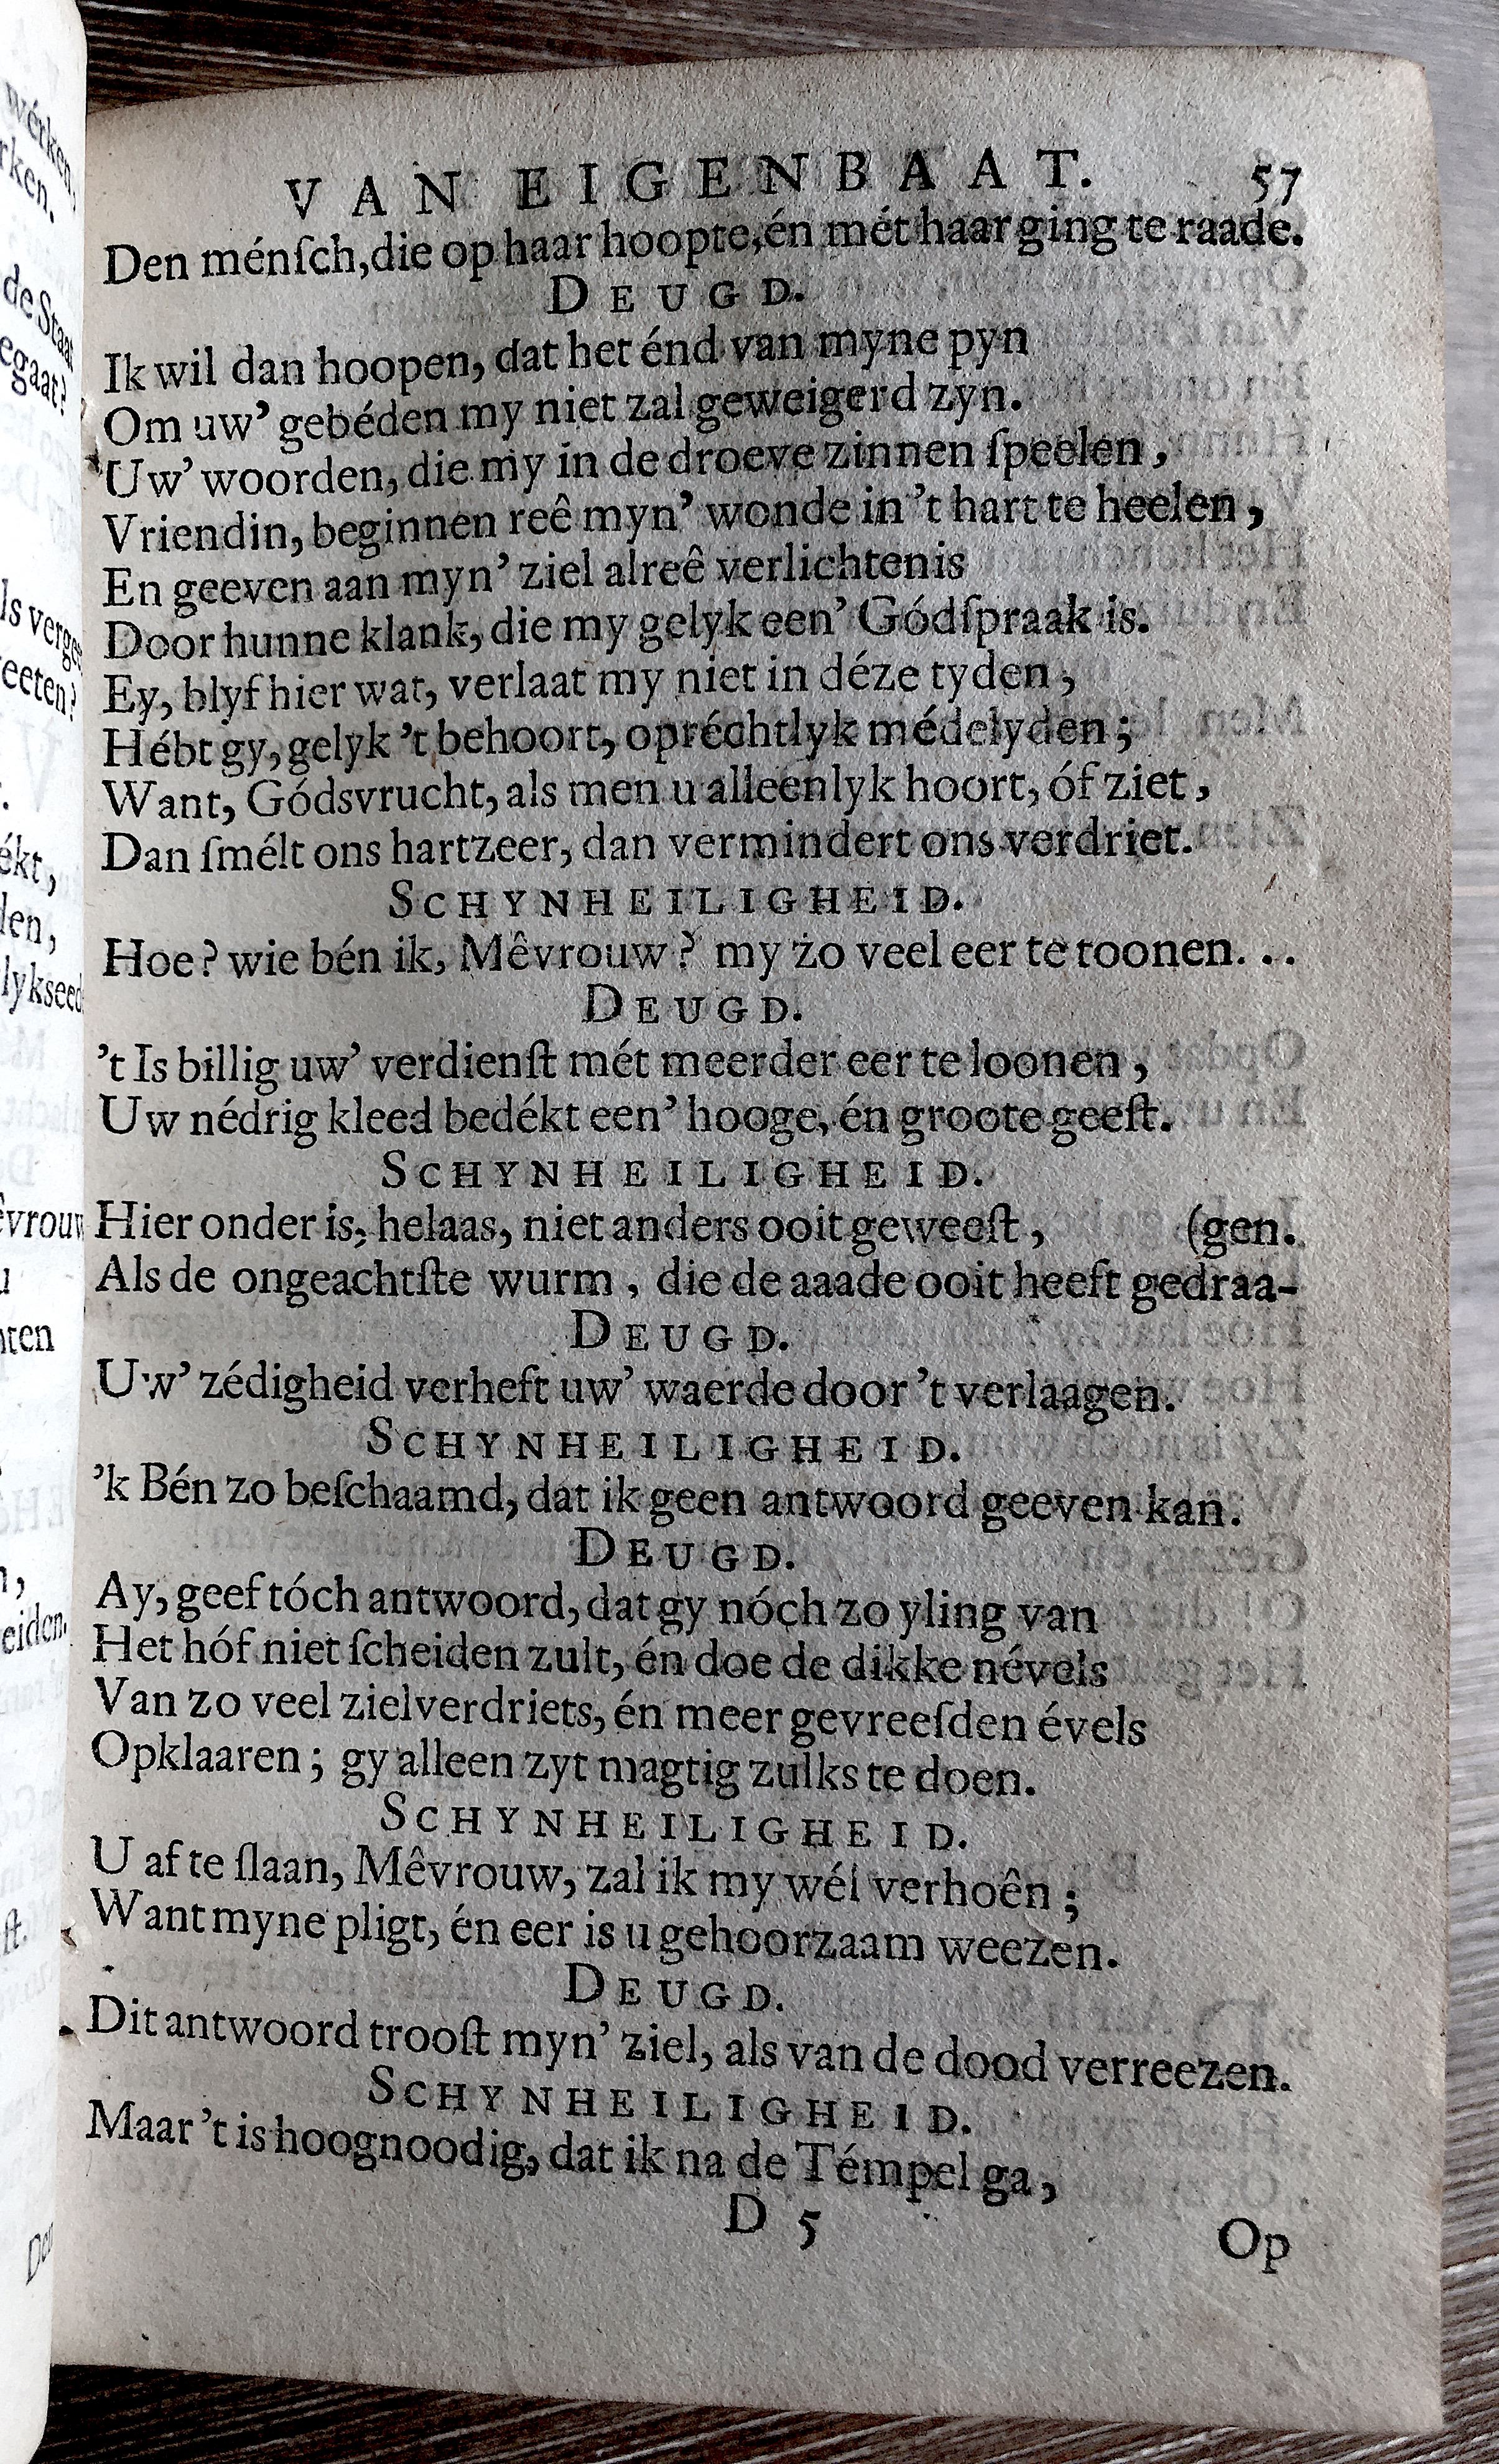 VAN EIGENBAAT. 57
Den ménſch, die op haar hoopte, én mét haar ging te raade.
DEUGD.
Ik wil dan hoopen, dat het énd van myne pyn
Om uw’ gebéden my niet zal geweigerd zyn.
Uw’ woorden, die my in de droeve zinnen ſpeelen,
Vriendin, beginnen reê myn’ wonde in ’t hart te heelen,
En geeven aan myn’ ziel alreê verlichtenis
Door hunne klank, die my gelyk een’ Gódſpraak is.
Ey, blyf hier wat, verlaat my niet in déze tyden,
Hébt gy, gelyk ’t behoort, opréchtlyk médelyden;
Want, Gódsvrucht, als men u alleenlyk hoort, óf ziet,
Dan ſmélt ons hartzeer, dan vermindert ons verdriet.
SCHYNHEILIGHEID.
Hoe? wie bén ik, Mêvrouw? my zo veel eer te toonen...
DEUGD.
’t Is billig uw’ verdienſt mét meerder eer te loonen,
Uw nédrig kleed bedékt een’ hooge, én groote geeſt.
SCHYNHEILIGHEID.
Hier onder is, helaas, niet anders ooit geweeſt, (gen.
Als de ongeachtſte wurm, die de aaade ooit heeft gedraa-
DEUGD.
Uw’ zédigheid verheft uw’ waerde door ’t verlaagen.
SCHYNHEILIGHEID.
’k Bén zo beſchaamd, dat ik geen antwoord geeven kan.
DEUGD.
Ay, geef tóch antwoord, dat gy nóch zo yling van
Het hóf niet ſcheiden zult, én doe de dikke névels
Van zo veel zielverdriets, én meer gevreeſden évels
Opklaaren; gy alleen zyt magtig zulks te doen.
SCHYNHEILIGHEID.
U af te ſlaan, Mêvrouw, zal ik my wél verhoên;
Want myne pligt, én eer is u gehoorzaam weezen.
DEUGD.
Dit antwoord trooſt myn’ ziel, als van de dood verreezen.
SCHYNHEILIGHEID.
Maar ’t is hoognoodig, dat ik na de Témpel ga,
D 5 Op